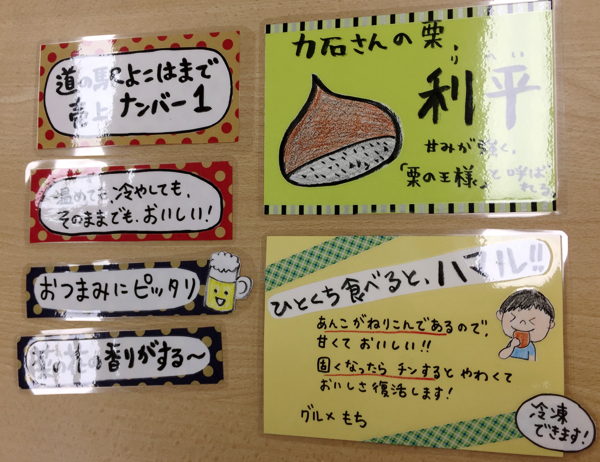 道の駅よこはまで
売上ナンバー1
温めても、冷やしても、
そのままでも、おいしい!
おつまみにピッタリ
の香りがする〜
力石さんの栗
利平
り
甘みが強く、
「栗の王様」と呼ば
れる
ひとくち食べると、ハマル!!
あんこがねりこんであるので、
甘くておいしい!!
固くなったらチンするとやわくて
おいしさ復活します!
グルメもち
冷凍
できます!